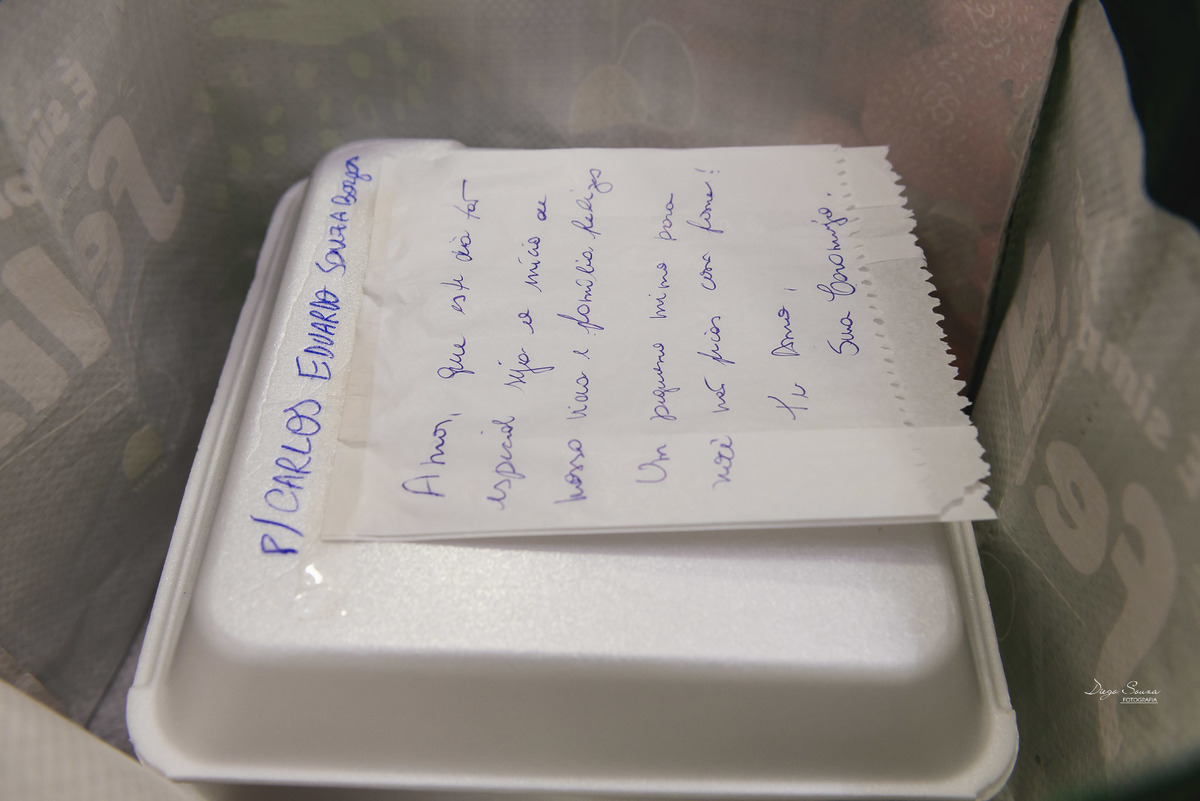 P/ CARLOS EDUARDO SOUZA Borges
Amor, que este dia tão
especial seja o início de
nossa linda e família feliz
Um pequeno mimo para
você não ficar com fome!
Te Amo,
Sua
Diego Souza
FOTOGRAFIA